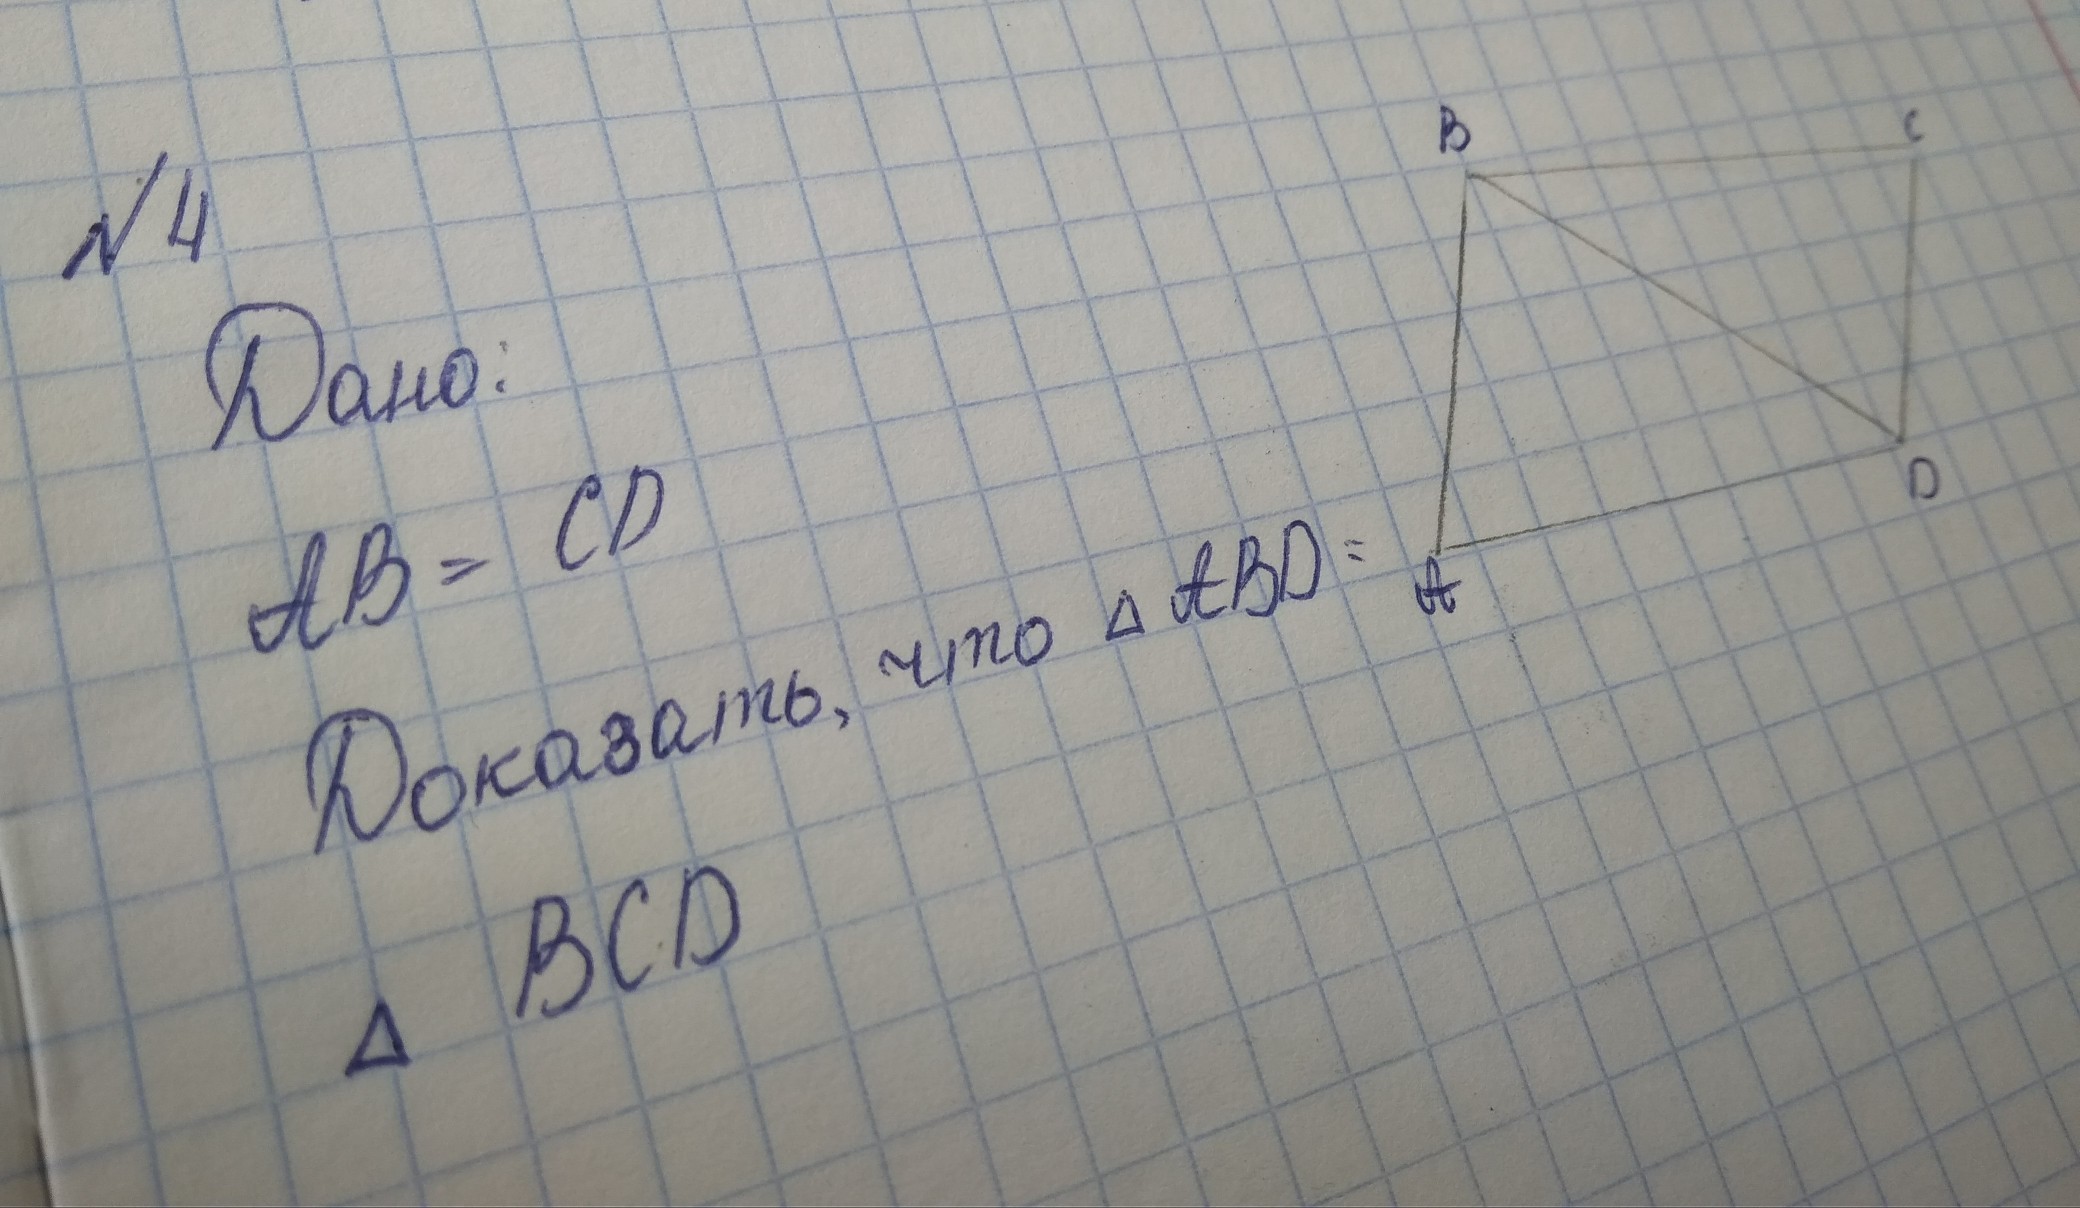 №4
Дано:
AB = CD
Доказать, что Δ ABD =
Δ BCD
B
C
A
D